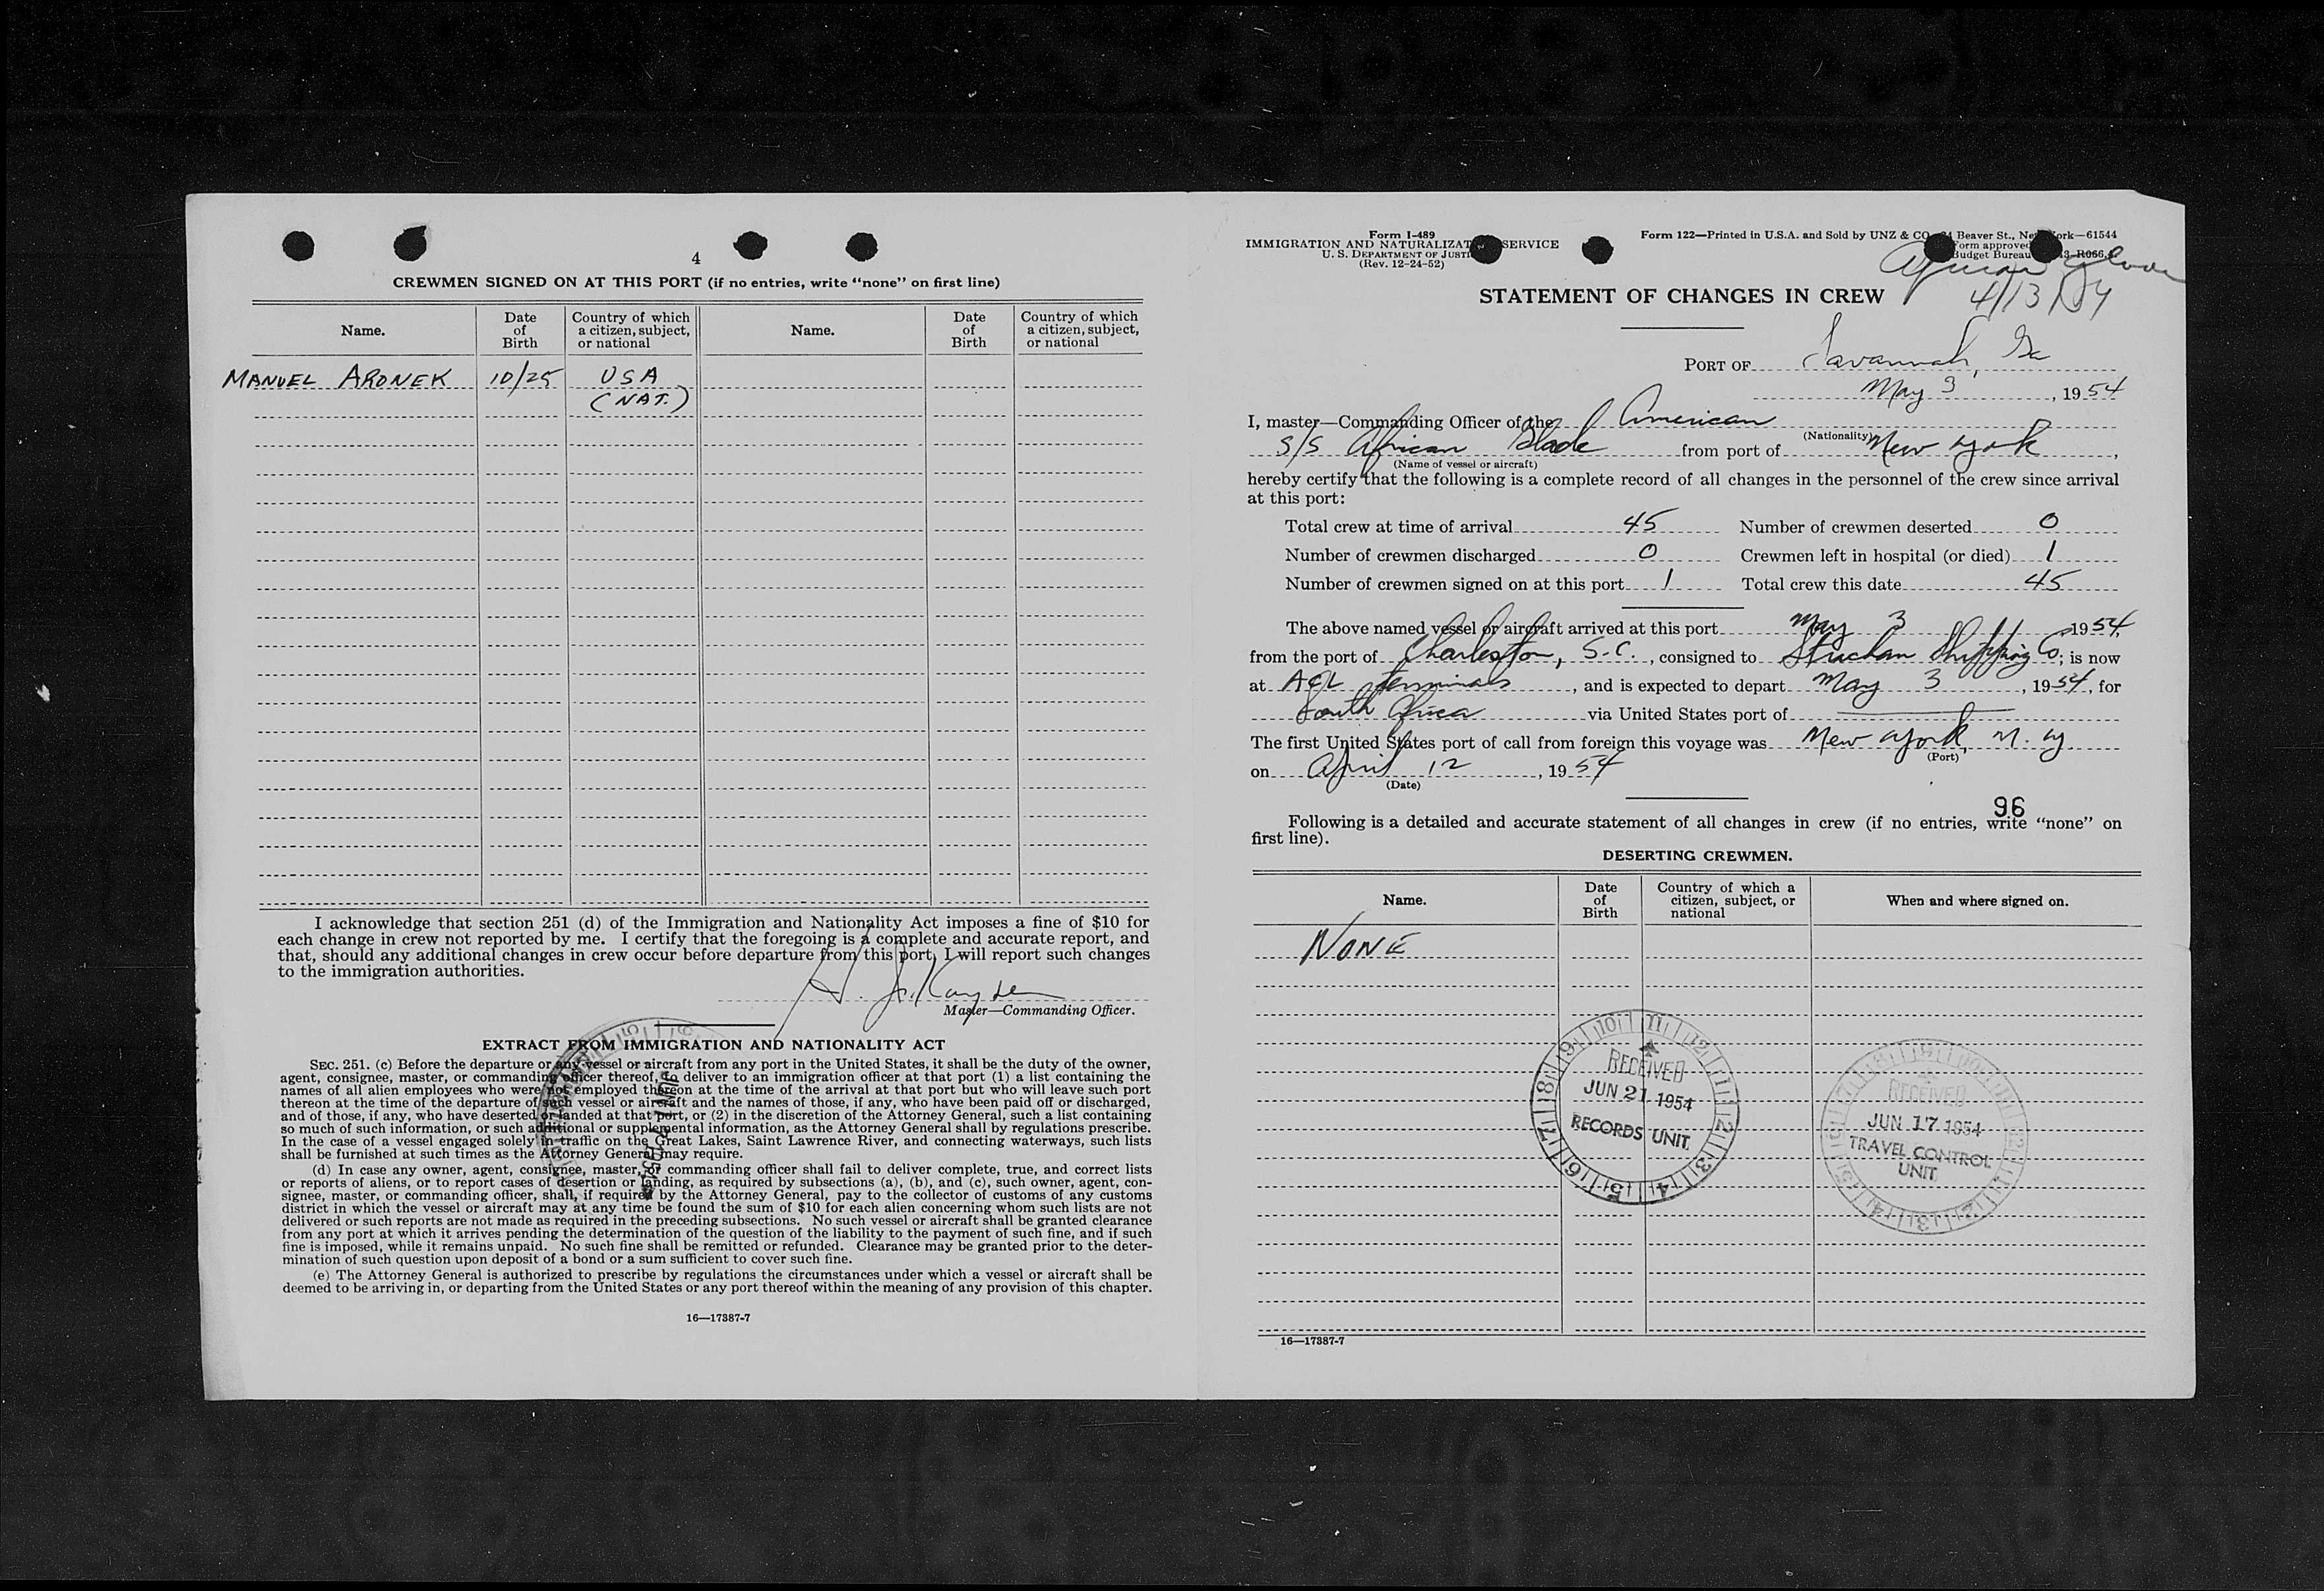 4
CREWMEN SIGNED ON AT THIS PORT (if no entries, write “none” on first line)
Name.
Date of Birth
Country of which a citizen, subject, or national
Name.
Date of Birth
Country of which a citizen, subject, or national
MANUEL ARONEK 10/25 USA
(NAT.)
I acknowledge that section 251 (d) of the Immigration and Nationality Act imposes a fine of $10 for
each change in crew not reported by me. I certify that the foregoing is a complete and accurate report, and
that, should any additional changes in crew occur before departure from this port, I will report such changes
to the immigration authorities.
Master—Commanding Officer.
EXTRACT FROM IMMIGRATION AND NATIONALITY ACT
SEC. 251. (c) Before the departure or any vessel or aircraft from any port in the United States, it shall be the duty of the owner,
agent, consignee, master, or commanding officer thereof, to deliver to an immigration officer at that port (1) a list containing the
names of all alien employees who were not employed thereon at the time of the arrival at that port but who will leave such port
thereon at the time of the departure of such vessel or aircraft and the names of those, if any, who have been paid off or discharged,
and of those, if any, who have deserted or landed at that port, or (2) in the discretion of the Attorney General, such a list containing
so much of such information, or such additional or supplemental information, as the Attorney General shall by regulations prescribe.
In the case of a vessel engaged solely in traffic on the Great Lakes, Saint Lawrence River, and connecting waterways, such lists
shall be furnished at such times as the Attorney General may require.
(d) In case any owner, agent, consignee, master, or commanding officer shall fail to deliver complete, true, and correct lists
or reports of aliens, or to report cases of desertion or landing, as required by subsections (a), (b), and (c), such owner, agent, con-
signee, master, or commanding officer, shall, if required by the Attorney General, pay to the collector of customs of any customs
district in which the vessel or aircraft may at any time be found the sum of $10 for each alien concerning whom such lists are not
delivered or such reports are not made as required in the preceding subsections. No such vessel or aircraft shall be granted clearance
from any port at which it arrives pending the determination of the question of the liability to the payment of such fine, and if such
fine is imposed, while it remains unpaid. No such fine shall be remitted or refunded. Clearance may be granted prior to the deter-
mination of such question upon deposit of a bond or a sum sufficient to cover such fine.
(e) The Attorney General is authorized to prescribe by regulations the circumstances under which a vessel or aircraft shall be
deemed to be arriving in, or departing from the United States or any port thereof within the meaning of any provision of this chapter.
16—17387-7
Form I-489
IMMIGRATION AND NATURALIZAT SERVICE
U. S. DEPARTMENT OF JUSTI
(Rev. 12-24-52)
Form 122—Printed in U.S.A. and Sold by UNZ & CO Beaver St., Ne ork—61544
orm approved
Budget Bureau R066.
4/13/54
STATEMENT OF CHANGES IN CREW
PORT OF Savannah, Ga
May 3, 1954
I, master—Commanding Officer of the American
(Nationality)
S/S African Glade from port of New York,
(Name of vessel or aircraft)
hereby certify that the following is a complete record of all changes in the personnel of the crew since arrival
at this port:
Total crew at time of arrival 45 Number of crewmen deserted 0
Number of crewmen discharged 0 Crewmen left in hospital (or died) 1
Number of crewmen signed on at this port 1 Total crew this date 45
The above named vessel or aircraft arrived at this port May 3 1954,
from the port of Charleston, S.C., consigned to Strachan Shipping Co; is now
at ACL terminals, and is expected to depart May 3, 1954, for
South Africa via United States port of
The first United States port of call from foreign this voyage was New York, N.Y
(Port)
on April 12, 1954
(Date)
96
Following is a detailed and accurate statement of all changes in crew (if no entries, write “none” on
first line).
DESERTING CREWMEN.
Name.
Date of Birth
Country of which a citizen, subject, or national
When and where signed on.
NONE
RECEIVED
JUN 21 1954
RECORDS UNIT
RECEIVED
JUN 17 1954
TRAVEL CONTROL
UNIT
16—17387-7